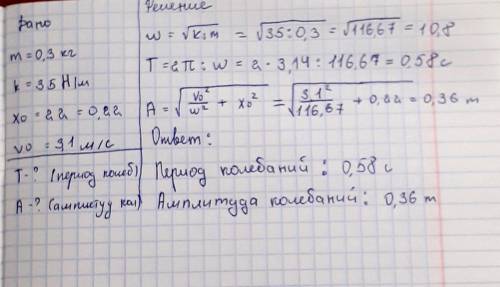 Дано
m = 0,3 кг
k = 35 Н/м
x₀ = 22 = 0,22
v₀ = 3,1 м/с
T - ? (период колеб)
A - ? (амплитуд кол)
Решение
w = √k:m = √35:0,3 = √116,67 = 10,8
T = 2π : w = 2 · 3,14 : 116,67 = 0,58 с
A = √(v₀²/w² + x₀²) = √(3,1²/116,67 + 0,22) = 0,36 m
Ответ:
Период колебаний: 0,58 с
Амплитуда колебаний: 0,36 m